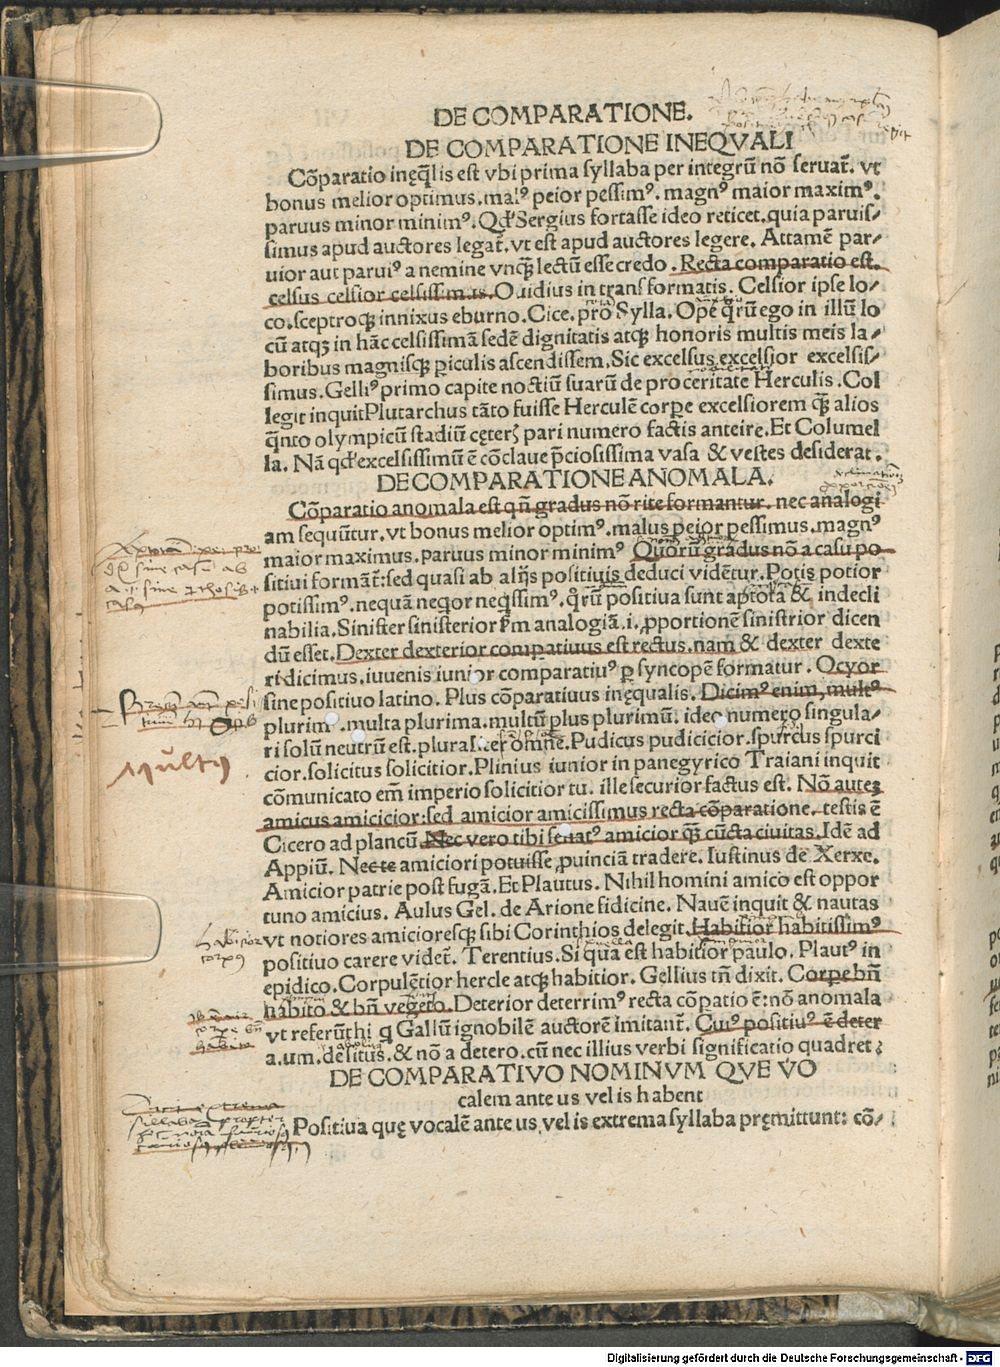 DE COMPARATIONE.
DE COMPARATIONE INEQVALI
Cōparatio inęq̄lis est vbi prima syllaba per integrū nō seruat̄. vt
bonus melior optimus. malꝰ peior pessimꝰ. magnꝰ maior maximꝰ.
paruus minor minimꝰ. Qd' Sergius fortasse ideo reticet. quia paruis/
simus apud auctores legat̄. vt est apud auctores legere. Attamē par/
uior aut paruiꝰ a nemine vnq̄ lectū esse credo. Recta comparatio est.
celsus celsior celsissimus. Ouidius in transformatis. Celsior ipse lo/
co. sceptroq̨ innixus eburno. Cice. pro Sylla. Opē q̄rū ego in illū lo
cū atqȝ in hāc celsissimā sedē dignitatis atq̨ honoris multis meis la/
boribus magnisq̨ ꝑiculis ascendissem. Sic excelsus excelsior excelsis/
simus. Gelliꝰ primo capite noctiū suarū de proceritate Herculis. Col
legit inquit Plutarchus tāto fuisse Herculē corꝑe excelsiorem q̄ alios
q̄nto olympicū stadiū cęterꝝ pari numero factis anteire. Et Columel
la. Nā qd' excelsissimū ē cōclaue p̄ciosissima vasa & vestes desiderat.
DE COMPARATIONE ANOMALA.
Cōparatio anomala est qn̄ gradus nō rite formantur. nec analogi
am sequūtur. vt bonus melior optimꝰ. malus peior pessimus. magnꝰ
maior maximus. paruus minor minimꝰ Quorū gradus nō a casu po
sitiui formāt̄: sed quasi ab alijs positiuis deduci vidētur. Potis potior
potissimꝰ. nequā neqor neq̄ssimꝰ. q̄rū positiua sunt aptota & indecli
nabilia. Sinister sinisterior ẜm analogiā. i. ꝓportionē sinistrior dicen
dū esset. Dexter dexterior compatiuus est rectus. nam & dexter dexte
ri dicimus. iuuenis iunior comparatiuꝰ ꝑ syncopē formatur. Ocyor
sine positiuo latino. Plus cōparatiuus inęqualis. Dicimꝰ enim, multꝰ
plurimꝰ. multa plurima. multū plus plurimū. ideo numero singula/
ri solū neutrū est. pluraliter omne. Pudicus pudicicior. spurcus spurci
cior. solicitus solicitior. Plinius iunior in panegyrico Traiani inquit
cōmunicato em̄ imperio solicitior tu. ille securior factus est. Nō auteȝ
amicus amicicior: sed amicior amicissimus recta cōparatione. testis ē
Cicero ad plancū. Nec vero tibi senatꝰ amicior q̄ cūcta ciuitas. Idē ad
Appiū. Necte amiciori potuisse ꝓuinciā tradere. Iustinus de Xerxe.
Amicior patrie post fugā. Et Plautus. Nihil homini amico est oppor
tuno amicius. Aulus Gel. de Arione fidicine. Nauē inquit & nautas
vt notiores amicioresq̨ sibi Corinthios delegit. Habitior habitissimꝰ
positiuo carere videt̄. Terentius. Si qua est habitior paulo. Plautꝰ in
epidico. Corpulētior hercle atq̨ habitior. Gellius tn̄ dixit. Corꝑe bn̄
habito & bn̄ vegeto. Deterior deterrimꝰ recta cōpatio ē: nō anomala
vt referūt hi q Gallū ignobilē auctorē imitant̄. Cuiꝰ positiuꝰ ē deter
a. um. desitus. & nō a detero. cū nec illius verbi significatio quadret;
DE COMPARATIVO NOMINVM QVE VO
calem ante us vel is habent
Positiua quę vocalē ante us vel is extrema syllaba pręmittunt: cō/
Multus
habitior
corpus
Digitalisierung gefördert durch die Deutsche Forschungsgemeinschaft - DFG